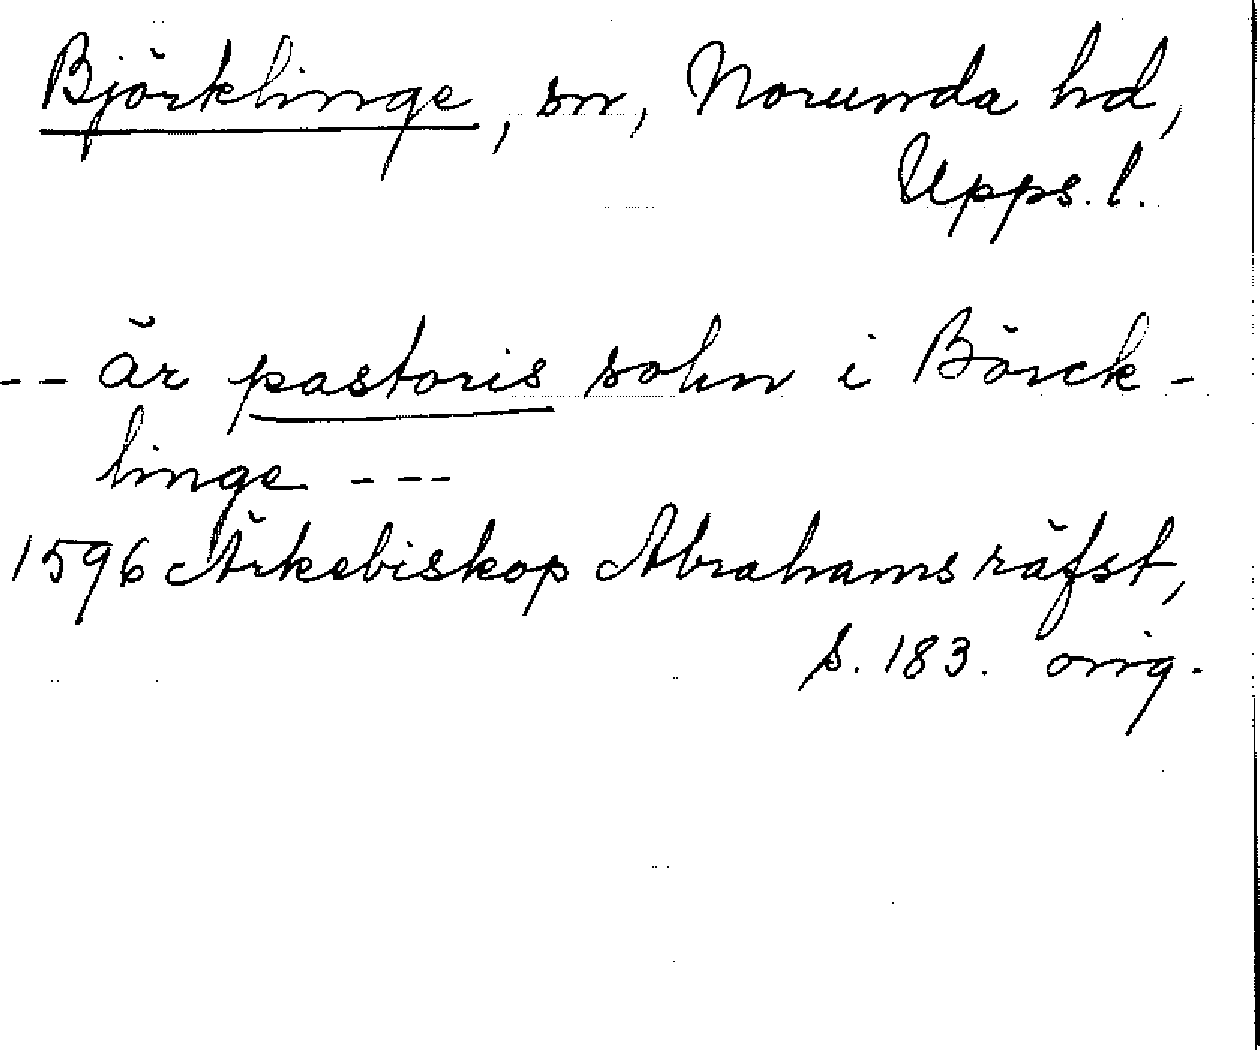 Björklinge, sn, Norunda hd,
Upps. l.
-- är pastoris sohn i Börck-
linge ---
1596 Ärkebiskop Abrahams räfst,
s. 183. orig.